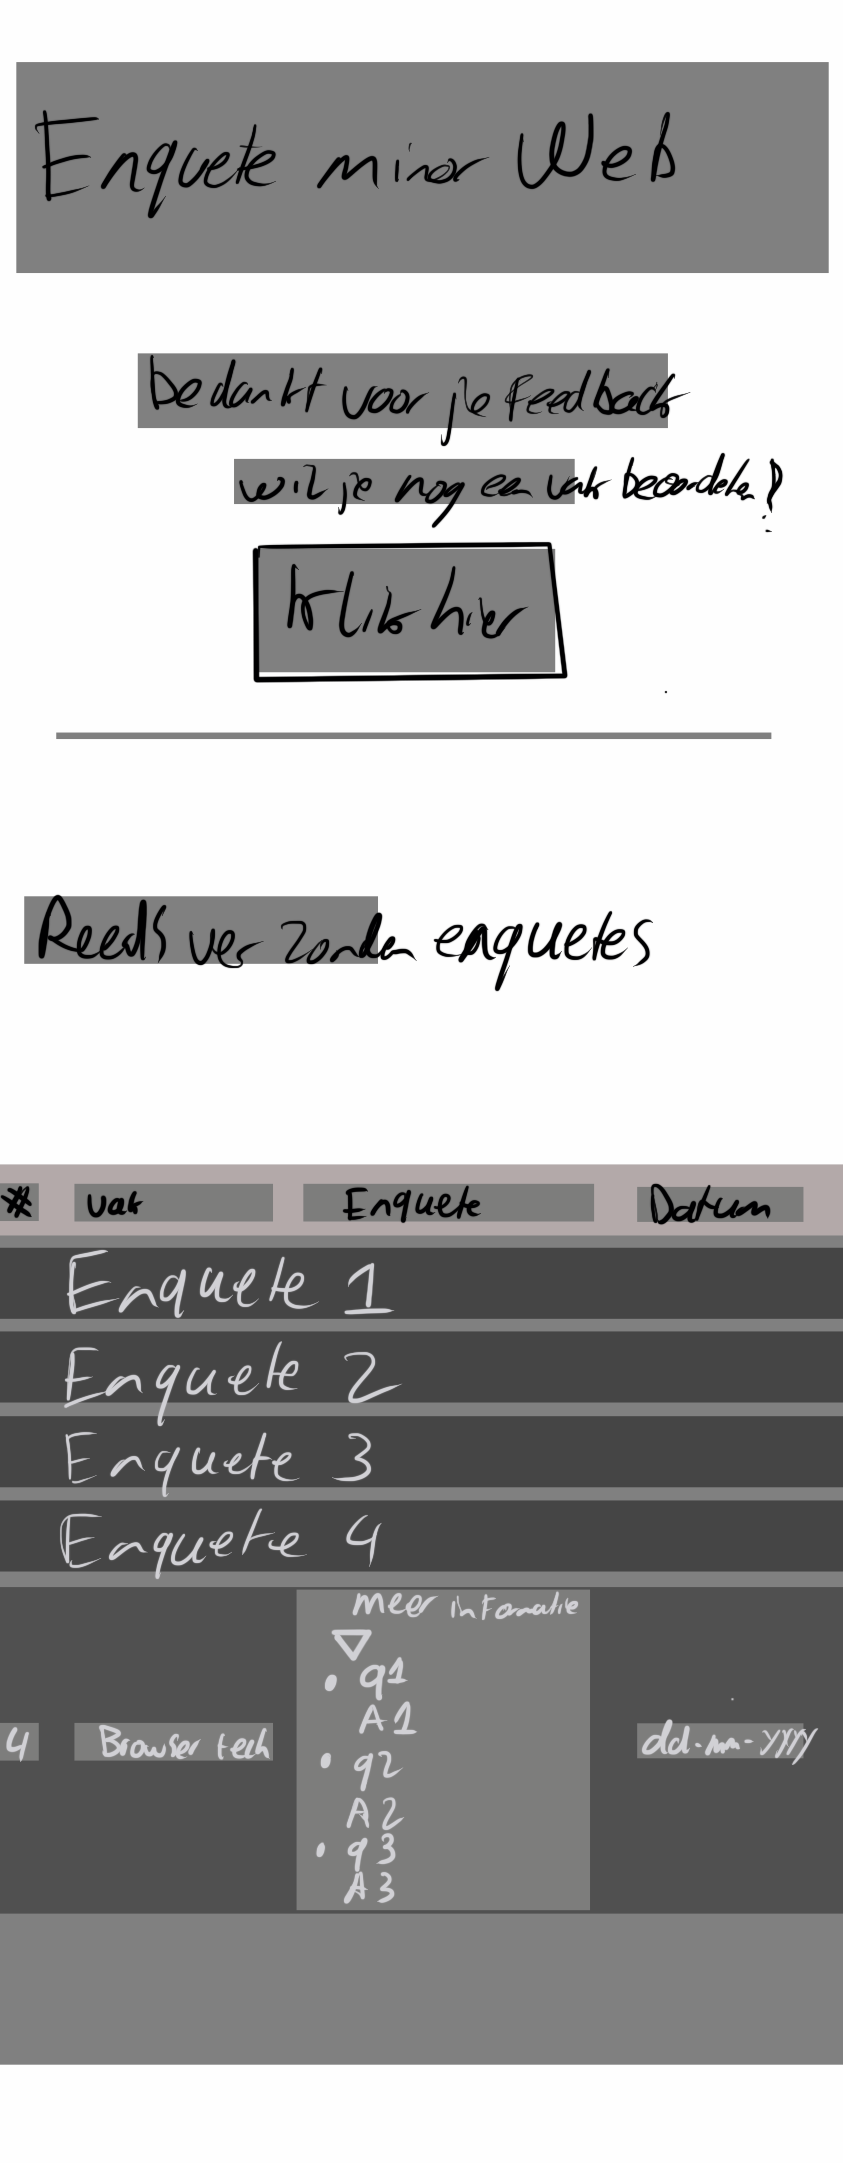 Enquete minor Web
bedankt voor je feedback
wil je nog een vak beoordelen?
klik hier
Reeds verzonden enquetes
# vak Enquete Datum
Enquete 1
Enquete 2
Enquete 3
Enquete 4
meer informatie
q1
A1
4 Browser tech dd-mm-yyyy
q2
A2
q3
A3